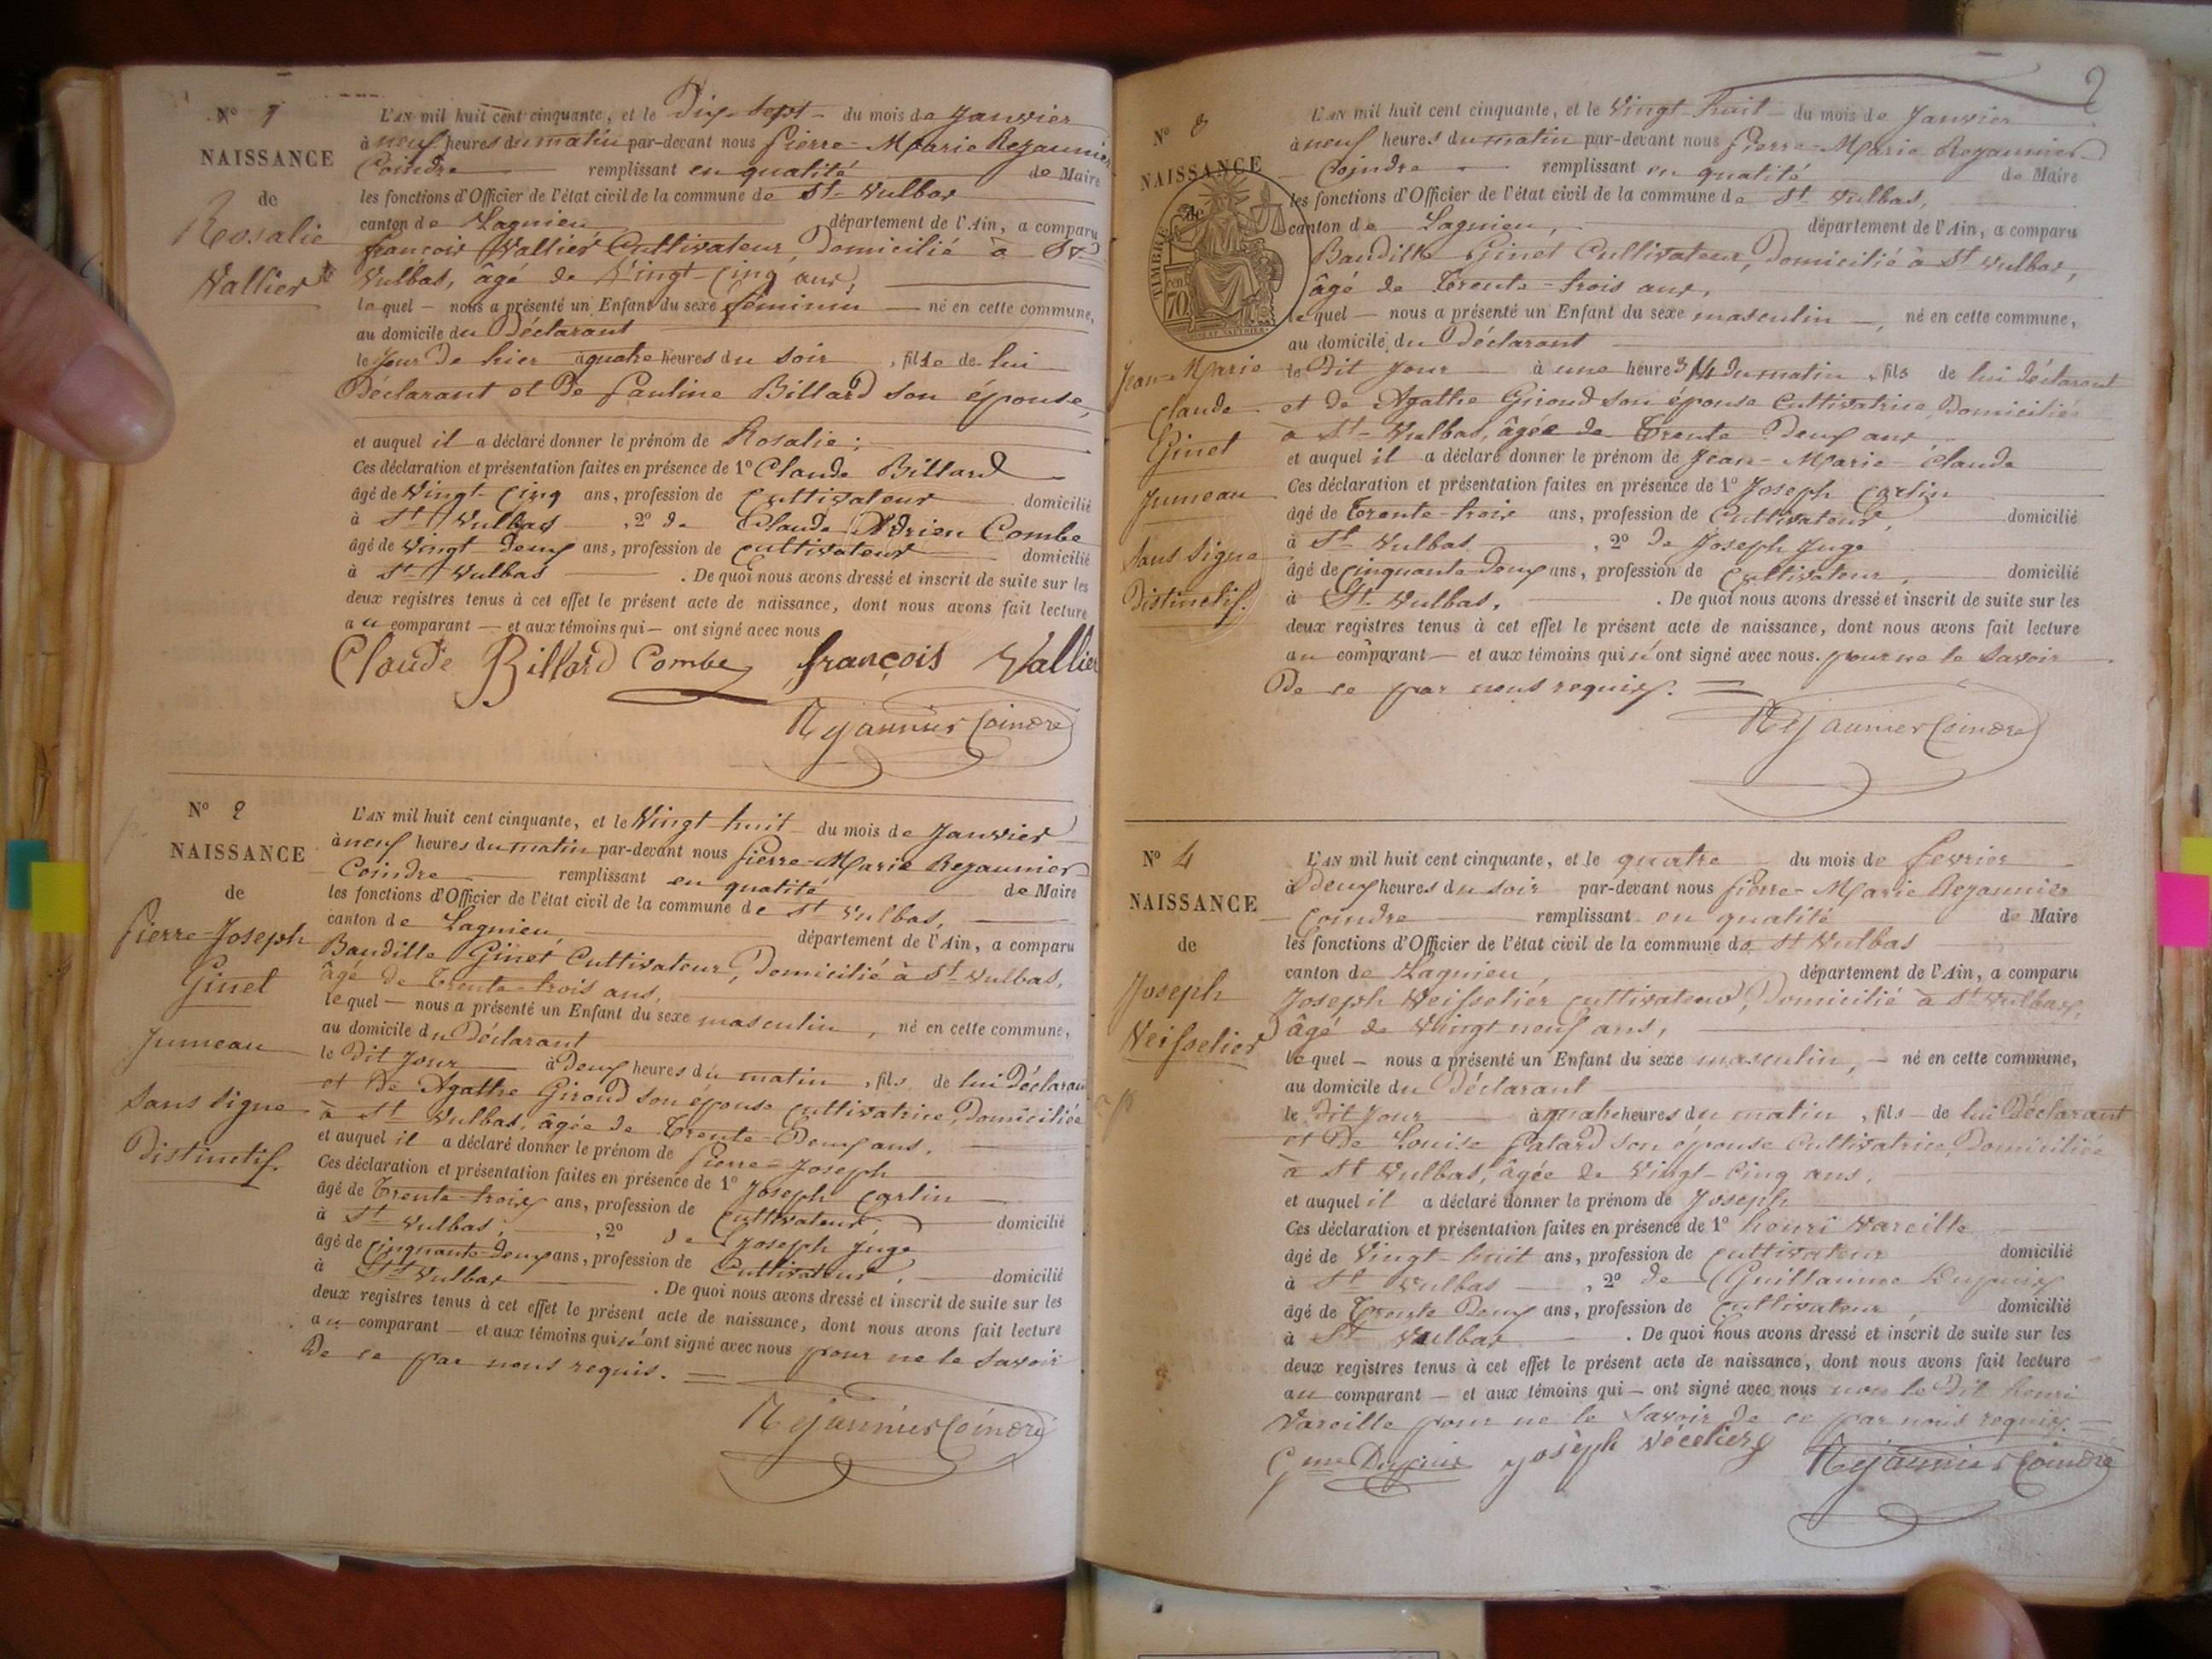 N° 1
NAISSANCE
de
Rosalie
Vallier
L'AN mil huit cent cinquante, et le Dix-Sept du mois de Janvier
à neuf heures du matin par-devant nous Pierre-Marie Rejaunier
Coindre remplissant en qualité de Maire
les fonctions d'Officier de l'état civil de la commune de St-Vulbas
canton de Lagnieu département de l'Ain, a comparu
françois Vallier Cultivateur, Domicilié à St
Vulbas, âgé de Vingt-Cinq ans,
lequel nous a présenté un Enfant du sexe féminin né en cette commune,
au domicile du Déclarant
le Jour de hier à quatre heures du soir, fille de lui
Déclarant et De Pauline Billard son épouse,
et auquel il a déclaré donner le prénom de Rosalie;
Ces déclaration et présentation faites en présence de 1° Claude Billard
âgé de Vingt-Cinq ans, profession de Cultivateur domicilié
à St Vulbas, 2° de Claude Adrien Combe
âgé de Vingt Deux ans, profession de Cultivateur domicilié
à St Vulbas. De quoi nous avons dressé et inscrit de suite sur les
deux registres tenus à cet effet le présent acte de naissance, dont nous avons fait lecture
au comparant et aux témoins qui ont signé avec nous
Claude Billard Combe françois Vallier
Rejaunier Coindre
N° 2
NAISSANCE
de
Pierre-Joseph
Ginet
Jumeau
Sans Signe
Distinctif.
L'AN mil huit cent cinquante, et le Vingt-huit du mois de Janvier
à neuf heures du matin par-devant nous Pierre-Marie Rejaunier
Coindre remplissant en qualité de Maire
les fonctions d'Officier de l'état civil de la commune de St Vulbas,
canton de Lagnieu département de l'Ain, a comparu
Baudille Ginet Cultivateur, Domicilié à St-Vulbas,
âgé de Trente-trois ans,
lequel nous a présenté un Enfant du sexe masculin, né en cette commune,
au domicile du Déclarant
le Dit Jour à Deux heures du matin, fils de lui Déclarant
et De Agathe Giroud son épouse Cultivatrice, Domiciliée
à St Vulbas, âgée de Trente-Deux ans,
et auquel il a déclaré donner le prénom de Pierre-Joseph
Ces déclaration et présentation faites en présence de 1° Joseph Carlin
âgé de Trente-trois ans, profession de Cultivateur, domicilié
à St Vulbas, 2° de Joseph Juge
âgé de Cinquante-Deux ans, profession de Cultivateur, domicilié
à St Vulbas. De quoi nous avons dressé et inscrit de suite sur les
deux registres tenus à cet effet le présent acte de naissance, dont nous avons fait lecture
au comparant et aux témoins qui n'ont signé avec nous pour ne le Savoir
De ce par nous requis.
Rejaunier Coindre
2
N° 3
NAISSANCE
de
TIMBRE
70
Jean-Marie
Claude
Ginet
Jumeau
Sans Signe
Distinctif.
L'AN mil huit cent cinquante, et le Vingt-huit du mois de Janvier
à neuf heures du matin par-devant nous Pierre-Marie Rejaunier
Coindre remplissant en qualité de Maire
les fonctions d'Officier de l'état civil de la commune de St Vulbas,
canton de Lagnieu, département de l'Ain, a comparu
Baudille Ginet Cultivateur, Domicilié à St Vulbas,
âgé de Trente-trois ans,
lequel nous a présenté un Enfant du sexe masculin, né en cette commune,
au domicile du Déclarant
le Dit Jour à une heure 3/4 du matin, fils de lui Déclarant
et de Agathe Giroud son épouse Cultivatrice, Domiciliée
à St-Vulbas, âgée de Trente Deux ans
et auquel il a déclaré donner le prénom de Jean-Marie-Claude
Ces déclaration et présentation faites en présence de 1° Joseph Carlin
âgé de Trente-trois ans, profession de Cultivateur, domicilié
à St Vulbas, 2° de Joseph Juge
âgé de Cinquante-Deux ans, profession de Cultivateur, domicilié
à St Vulbas. De quoi nous avons dressé et inscrit de suite sur les
deux registres tenus à cet effet le présent acte de naissance, dont nous avons fait lecture
au comparant et aux témoins qui n'ont signé avec nous. pour ne le Savoir
De ce par nous requis.
Rejaunier Coindre
N° 4
NAISSANCE
de
Joseph
Veisselier
L'AN mil huit cent cinquante, et le quatre du mois de fevrier
à Deux heures du soir par-devant nous Pierre-Marie Rejaunier
Coindre remplissant en qualité de Maire
les fonctions d'Officier de l'état civil de la commune de St Vulbas
canton de Lagnieu, département de l'Ain, a comparu
Joseph Veisselier Cultivateur, Domicilié à St Vulbas,
âgé de Vingt neuf ans,
lequel nous a présenté un Enfant du sexe masculin, né en cette commune,
au domicile du Déclarant
le Dit Jour à quatre heures du matin, fils de lui Déclarant
et De Louise Patard son épouse Cultivatrice, Domiciliée
à St Vulbas, âgée de Vingt-Cinq ans,
et auquel il a déclaré donner le prénom de Joseph
Ces déclaration et présentation faites en présence de 1° henri Vareille
âgé de Vingt-huit ans, profession de Cultivateur domicilié
à St Vulbas, 2° de Guillaume Dupuis
âgé de Trente Deux ans, profession de Cultivateur domicilié
à St Vulbas. De quoi nous avons dressé et inscrit de suite sur les
deux registres tenus à cet effet le présent acte de naissance, dont nous avons fait lecture
au comparant et aux témoins qui ont signé avec nous non le Dit henri
Vareille pour ne le Savoir de ce par nous requis.
Gme Dupuis Joseph Vécelier Rejaunier Coindre